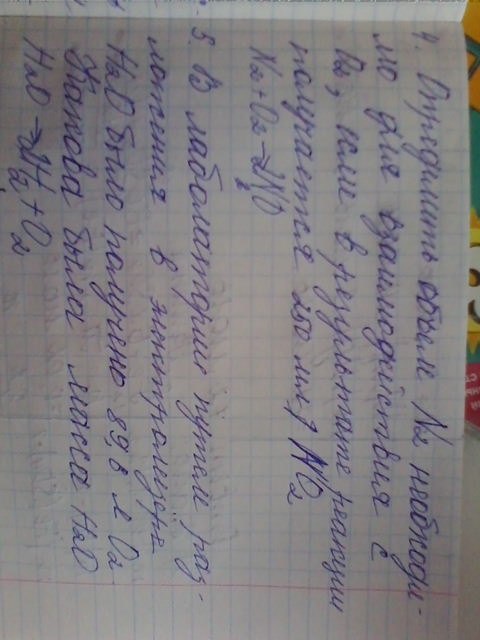 4. Определить объем N₂ необходи-
мо для взаимодействия с
O₂, если в результате реакции
получается 250 мл, NO₂
N₂ + O₂ → 2NO
5. В лаболатории путем раз-
ложения в электролизере
H₂O было получено 89,6 л O₂
Какова была масса H₂O
H₂O → 2H₂ + O₂